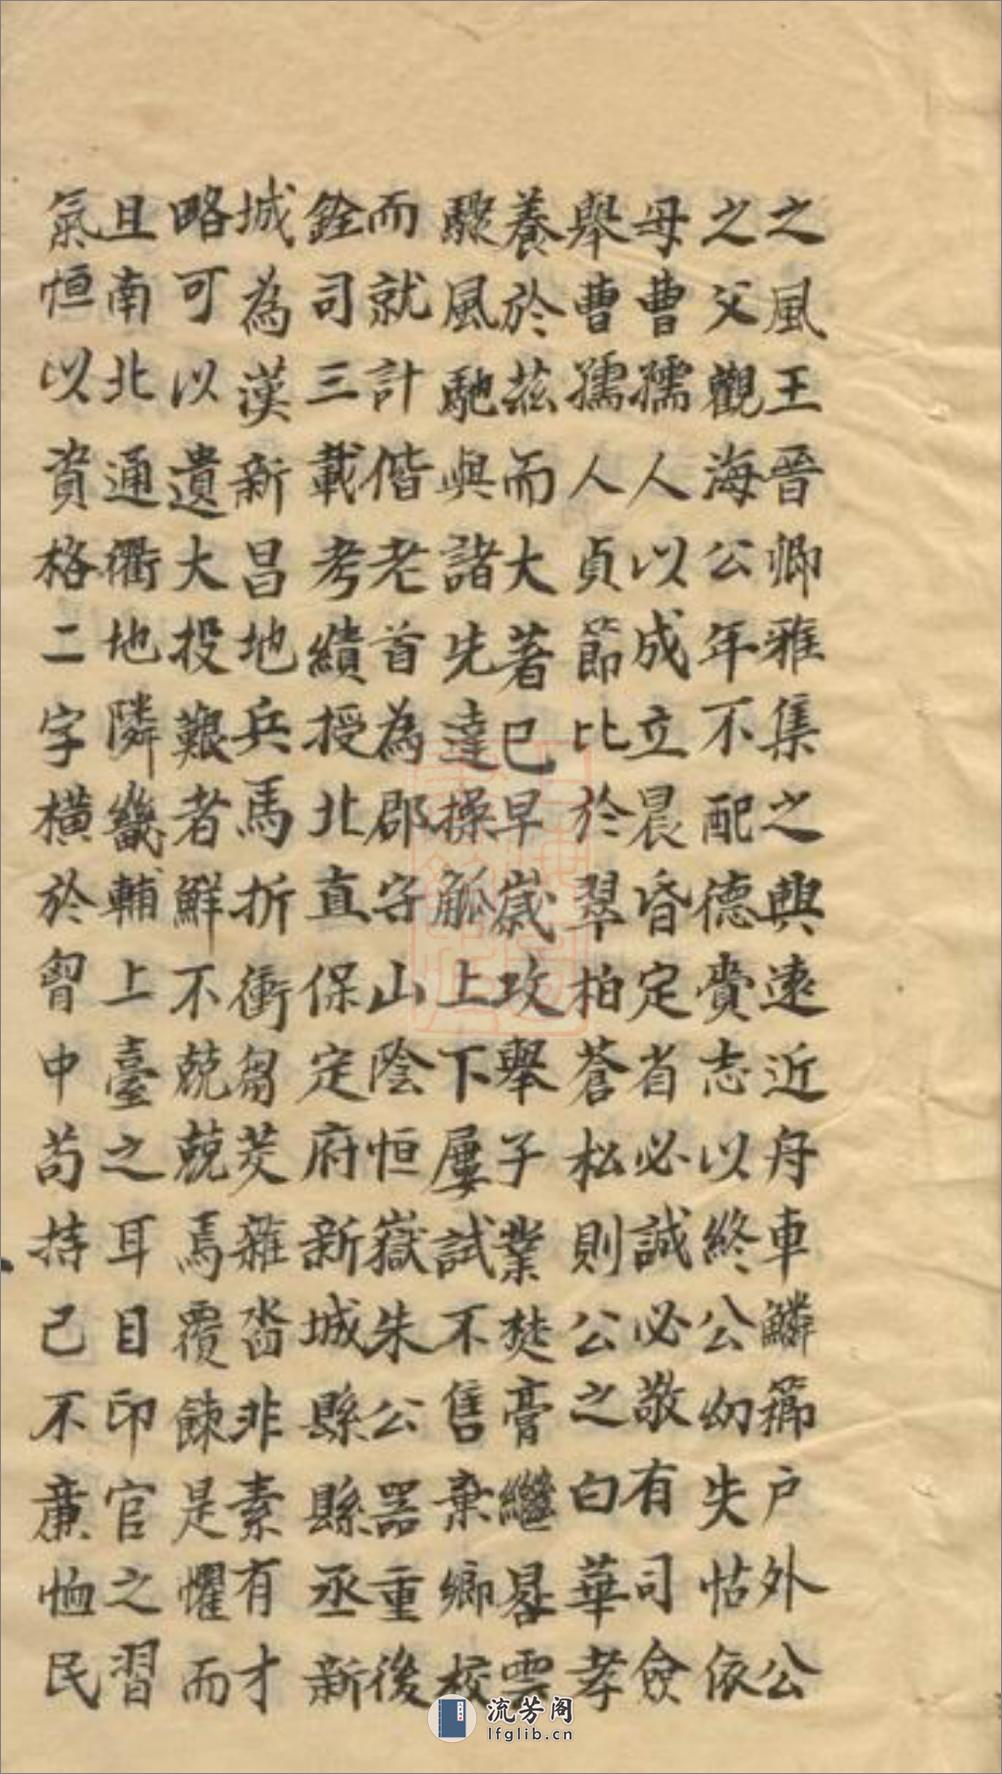 之風王晉卿雅集之興遠近舟車鱗籂户外公
之父觀海公年不配德賫志以終公幼失怙依
母曹孺人以成立晨昏定省必誠必敬有司僉
舉曹孺人貞節比於翠柏蒼松則公之白華孝
養於茲而大著已早歲攻舉子業焚膏繼晷雲
驟風馳與諸先達操觚上下屢試不售棄鄉校
而就計偕老首為郡守山陰恒嶽朱公器重後
銓司三載考績授北直保定府新城縣縣丞新
城為漢新昌地兵馬折衝芻茭雜沓非素有才
略可以遺大投艱者鮮不兢兢焉覆餗是懼而
且南北通衢地隣畿輔上臺之耳目印官之習
氣恒以資格二字橫於胷中苟持己不廉恤民
流芳阁
lfglib.cn